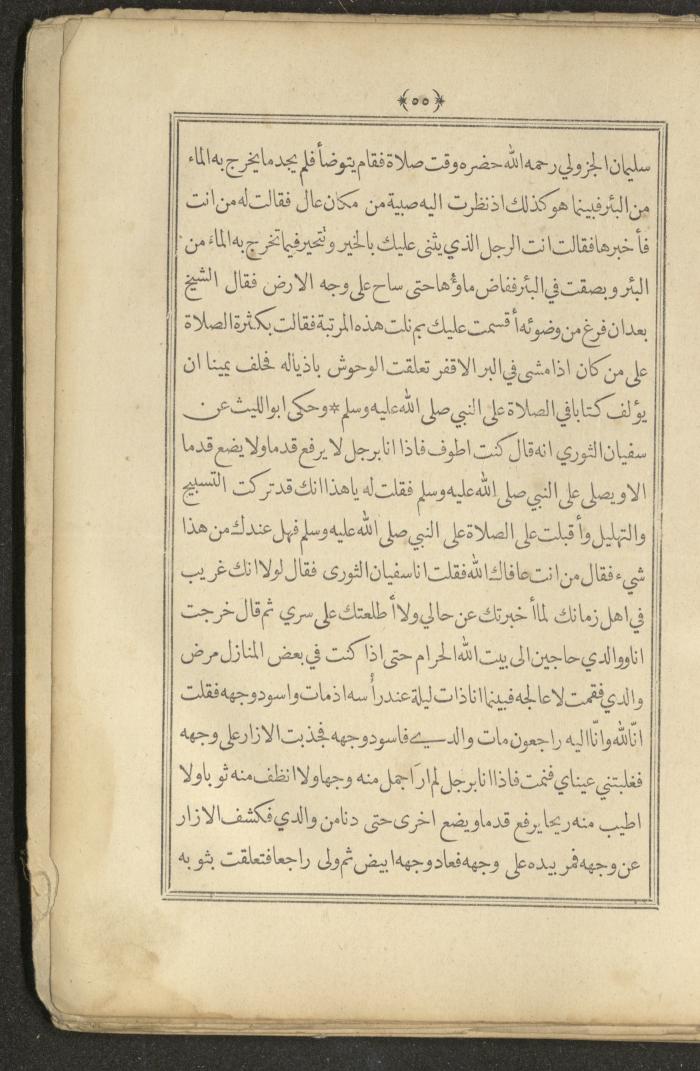 ﴿٥٥﴾
سليمان الجزولي رحمه الله حضره وقت صلاة فقام يتوضأ فلم يجد ما يخرج به الماء
من البئر فبينما هو كذلك اذ نظرت اليه صبية من مكان عال فقالت له من انت
فأخبرها فقالت انت الرجل الذي يثنى عليك بالخير وتتحير فيما تخرج به الماء من
البئر وبصقت في البئر ففاض ماؤها حتى ساح على وجه الارض فقال الشيخ
بعد ان فرغ من وضوئه أقسمت عليك بم نلت هذه المرتبة فقالت بكثرة الصلاة
على من كان اذا مشى في البر الاقفر تعلقت الوحوش باذياله فحلف يمينا ان
يؤلف كتابا في الصلاة على النبي صلى الله عليه وسلم * وحكى ابو الليث عن
سفيان الثوري انه قال كنت اطوف فاذا انا برجل لا يرفع قدما ولا يضع قدما
الا ويصلى على النبي صلى الله عليه وسلم فقلت له يا هذا انك قد تركت التسبيح
والتهليل وأقبلت على الصلاة على النبي صلى الله عليه وسلم فهل عندك من هذا
شيء فقال من انت عافاك الله فقلت انا سفيان الثورى فقال لولا انك غريب
في اهل زمانك لما أخبرتك عن حالي ولا أطلعتك على سري ثم قال خرجت
انا ووالدي حاجين الى بيت الله الحرام حتى اذا كنت في بعض المنازل مرض
والدي فقمت لاعالجه فبينما انا ذات ليلة عند رأسه اذ مات واسود وجهه فقلت
انّا لله وانّا اليه راجعون مات والدي فاسود وجهه فجذبت الازار على وجهه
فغلبتني عيناي فنمت فاذا انا برجل لم ار اجمل منه وجها ولا انظف منه ثوبا ولا
اطيب منه ريحا يرفع قدما ويضع اخرى حتى دنا من والدي فكشف الازار
عن وجهه فمر بيده على وجهه فعاد وجهه ابيض ثم ولى راجعا فتعلقت بثوبه